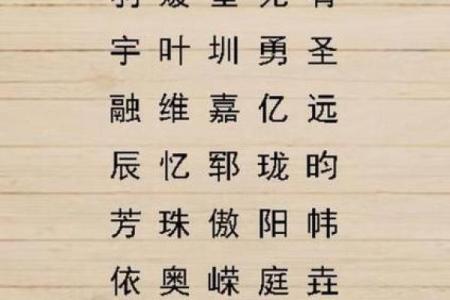 宇叶圳勇圣
融维嘉亿远
辰忆郓珑昀
芳珠傲阳帏
依奥嵘庭垚